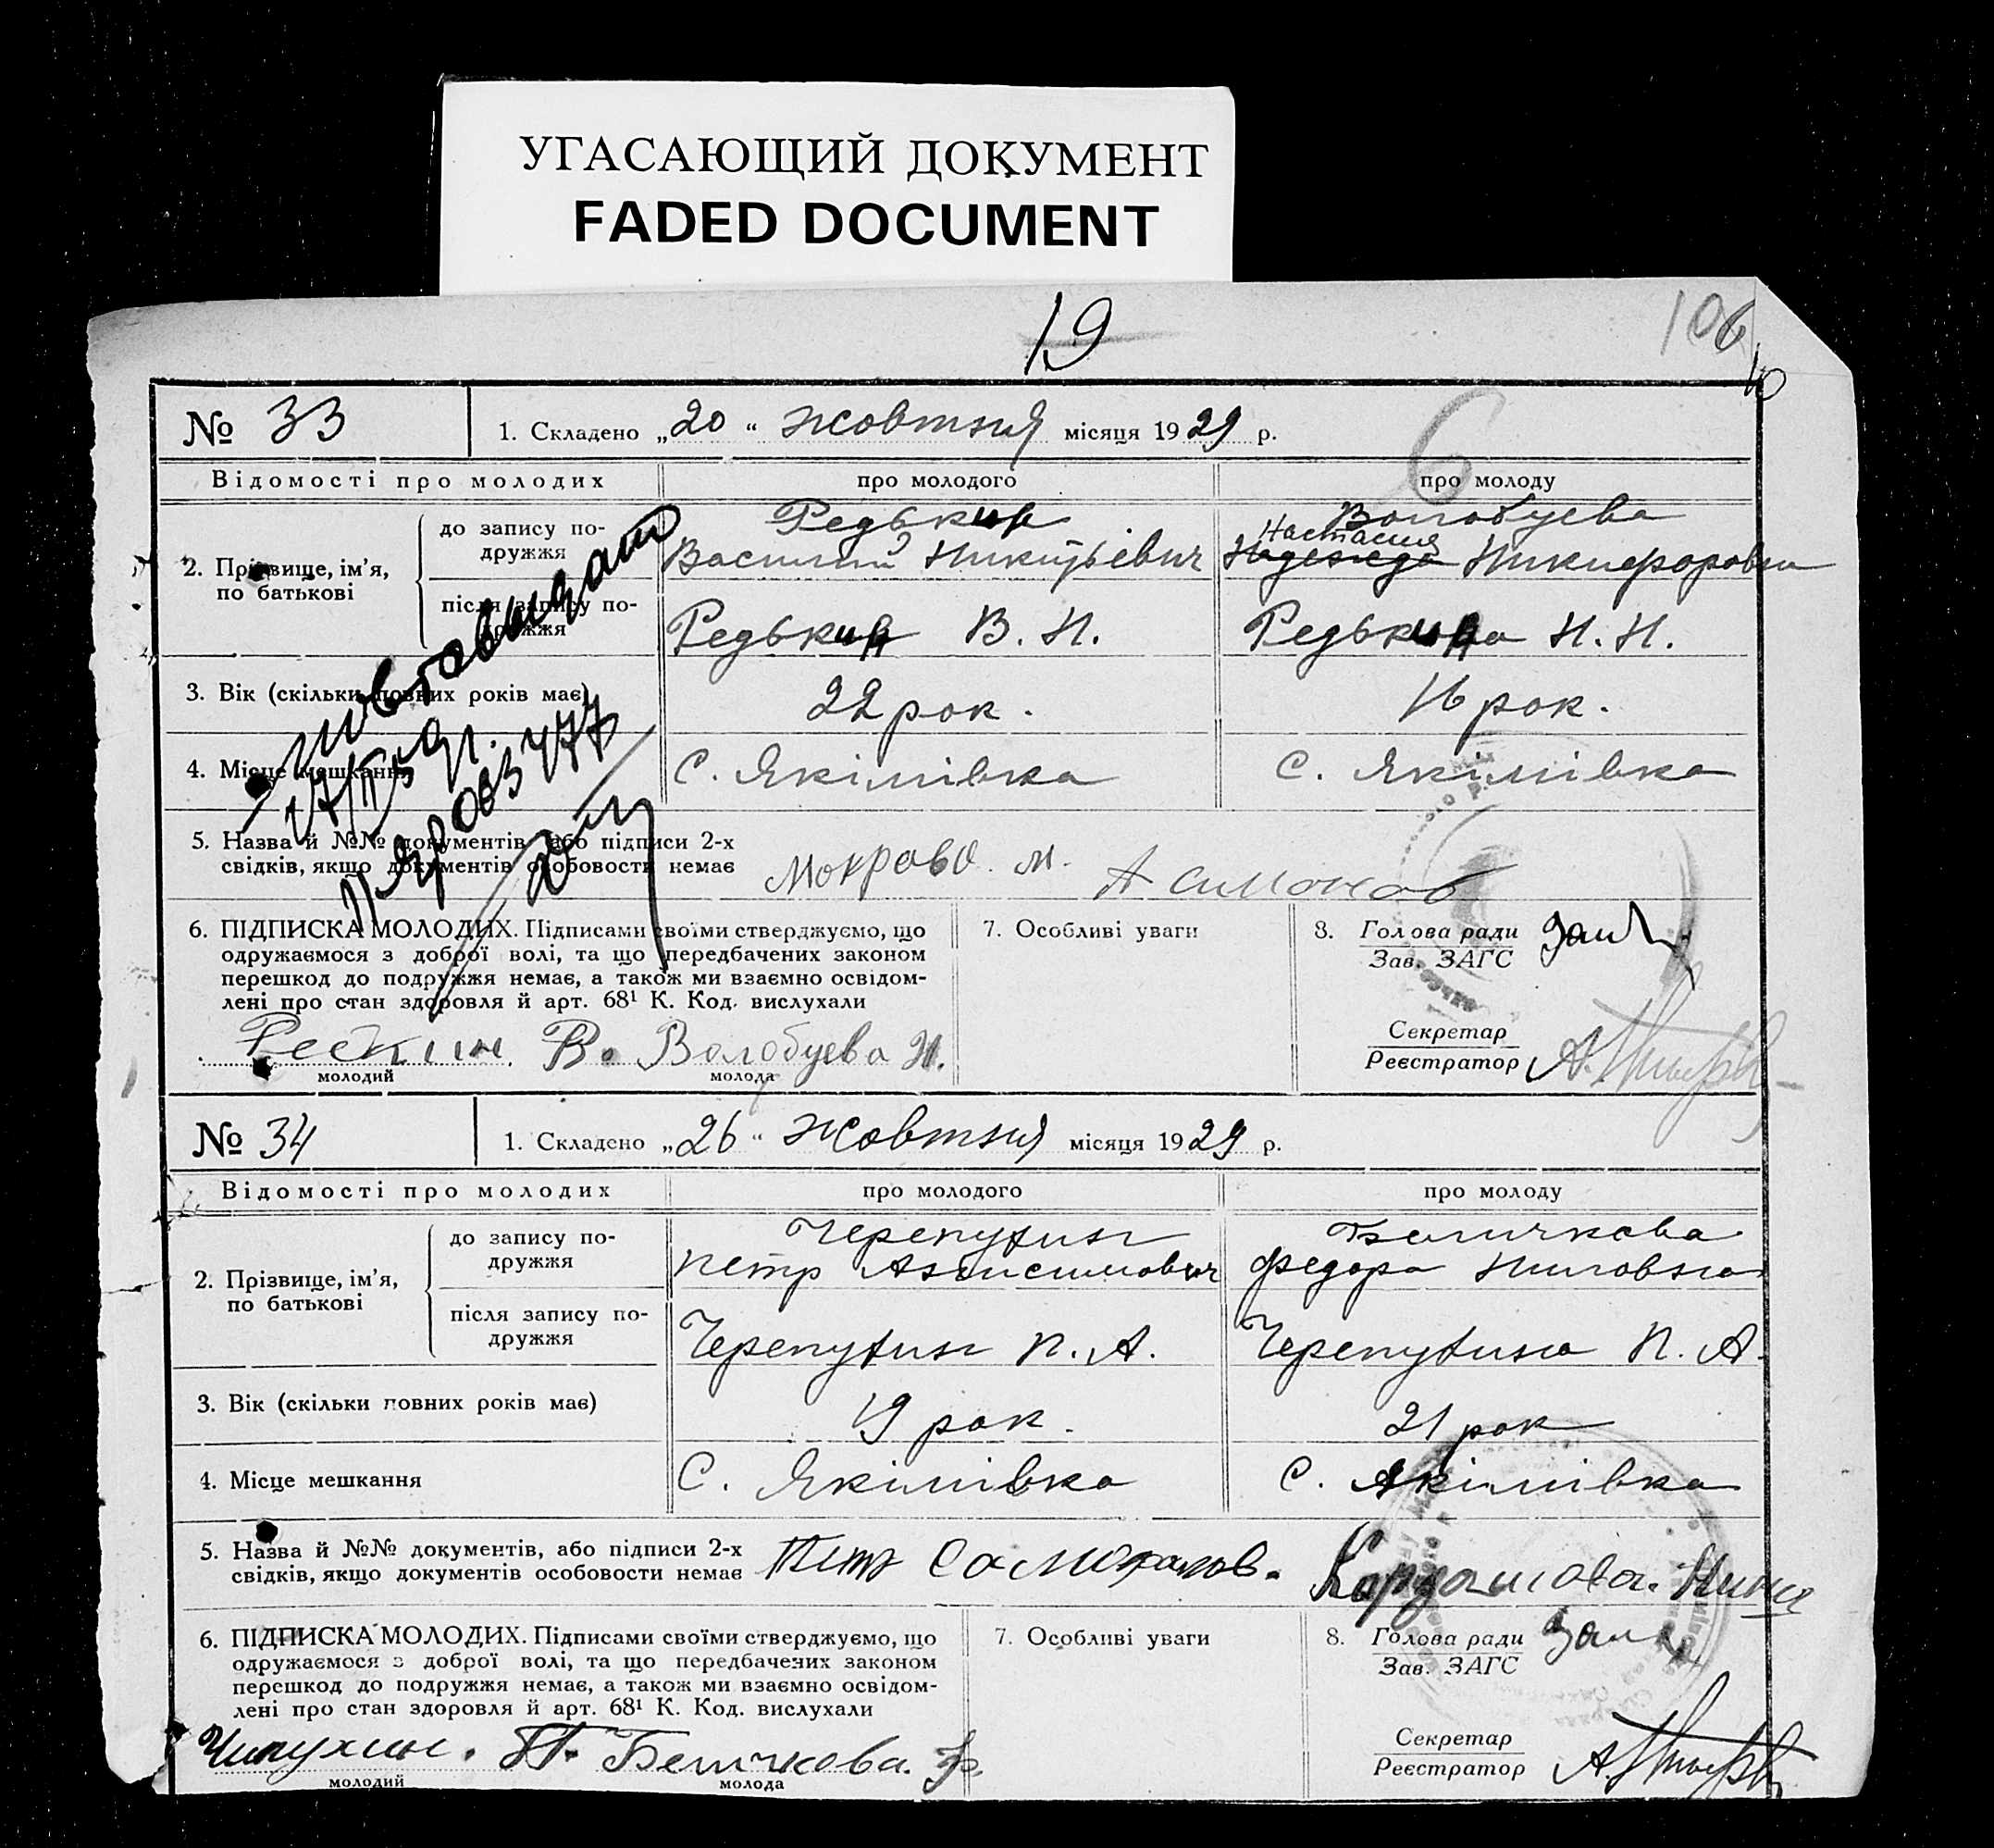 УГАСАЮЩИЙ ДОКУМЕНТ
FADED DOCUMENT
19
106
№ 33
1. Складено „20“ жовтня місяця 1929 р.
Відомості про молодих
про молодого
про молоду
2. Прізвище, ім’я, по батькові
до запису по-
дружжя
Редькин
Василий Никитьевич
Волобуева
Настасия
Надежда Никифоровна
після запису по-
дружжя
Редькин В. Н.
Редькина Н. Н.
3. Вік (скільки повних років має)
22 рок.
16 рок.
4. Місце мешкання
С. Якімівка
С. Якімівка
5. Назва й №№ документів, або підписи 2-х
свідків, якщо документів особовости немає
Мокрово. м.
А Симонов
6. ПІДПИСКА МОЛОДИХ. Підписами своїми стверджуємо, що
одружаємося з доброї волі, та що передбачених законом
перешкод до подружжя немає, а також ми взаємно освідом-
лені про стан здоровля й арт. 68¹ К. Код. вислухали
Редкин В. Волобуева Н.
молодий
молода
7. Особливі уваги
8. Голова ради
Зав. ЗАГС
Секретар
Реєстратор
№ 34
1. Складено „26“ жовтня місяця 1929 р.
Відомості про молодих
про молодого
про молоду
2. Прізвище, ім’я,
по батькові
до запису по-
дружжя
Черепухин
Петр Анисимович
Беличкова
Федора Ниловна
після запису по-
дружжя
Черепухин П. А.
Черепухина П. А.
3. Вік (скільки повних років має)
19 рок.
21 рок
4. Місце мешкання
С. Якімівка
С. Якімівка
5. Назва й №№ документів, або підписи 2-х
свідків, якщо документів особовости немає
Кардашова. Нина
6. ПІДПИСКА МОЛОДИХ. Підписами своїми стверджуємо, що
одружаємося з доброї волі, та що передбачених законом
перешкод до подружжя немає, а також ми взаємно освідом-
лені про стан здоровля й арт. 68¹ К. Код. вислухали
Чипухин. П. Беличкова. Ф.
молодий
молода
7. Особливі уваги
8. Голова ради
Зав. ЗАГС
Секретар
Реєстратор